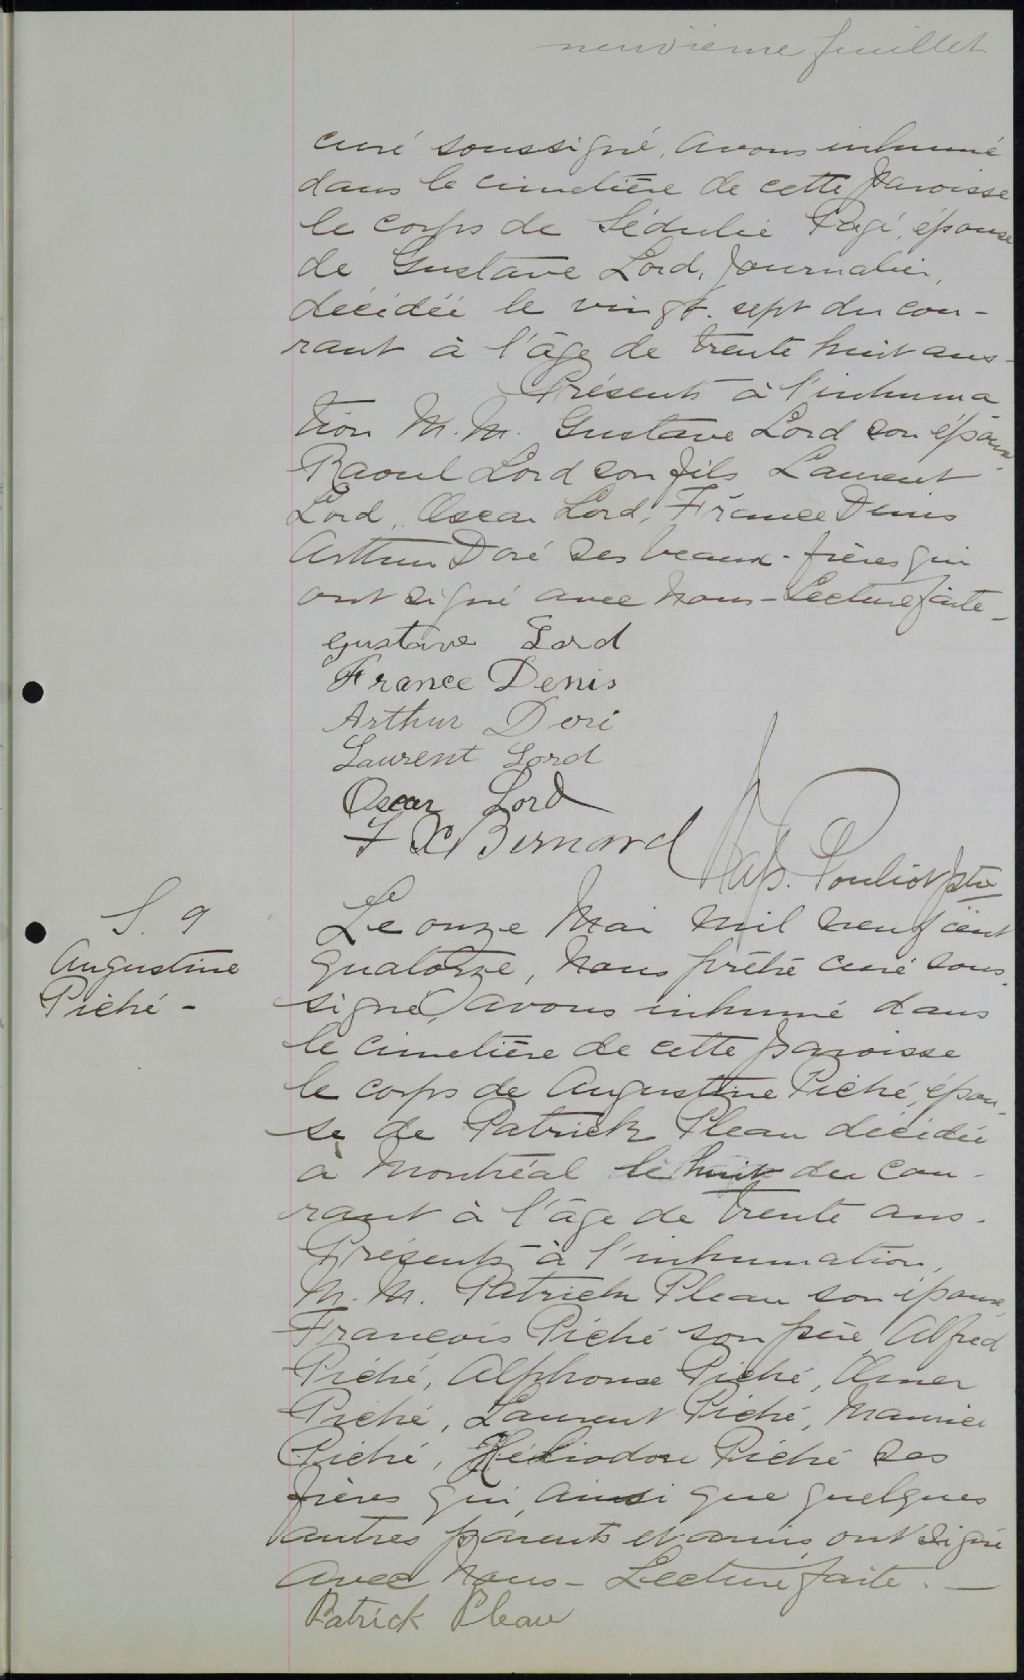 neuvième feuillet
curé soussigné, avons inhumé
dans le cimetière de cette paroisse
le corps de Sédulie Pagé, épouse
de Gustave Lord, journalier,
décédée le vingt-sept du cou-
rant à l'âge de trente huit ans -
Présents à l'inhuma
tion M. M. Gustave Lord son époux,
Raoul Lord son fils Laurent
Lord, Oscar Lord, France Denis
Arthur Doré ses beaux-frères qui
ont signé avec nous - Lecture faite -
Gustave Lord
France Denis
Arthur Doré
Laurent Lord
Oscar Lord
F X Bernard
Nap. Pouliot ptre
S. 9
Augustine
Piché -
Le onze Mai mil neuf cent
quatorze, nous prêtre curé sous-
signé, avons inhumé dans
le cimetière de cette paroisse
le corps de Augustine Piché, épou-
se de Patrick Pleau décédée
à Montréal le huit du cou-
rant à l'âge de trente ans.
Présents à l'inhumation,
M. M. Patrick Pleau son époux,
François Piché son père, Alfred
Piché, Alphonse Piché, Omer
Piché, Laurent Piché, Maurice
Piché, Héliodore Piché ses
frères qui, ainsi que quelques
autres parents et amis, ont signé
avec nous - Lecture faite. -
Patrick Pleau